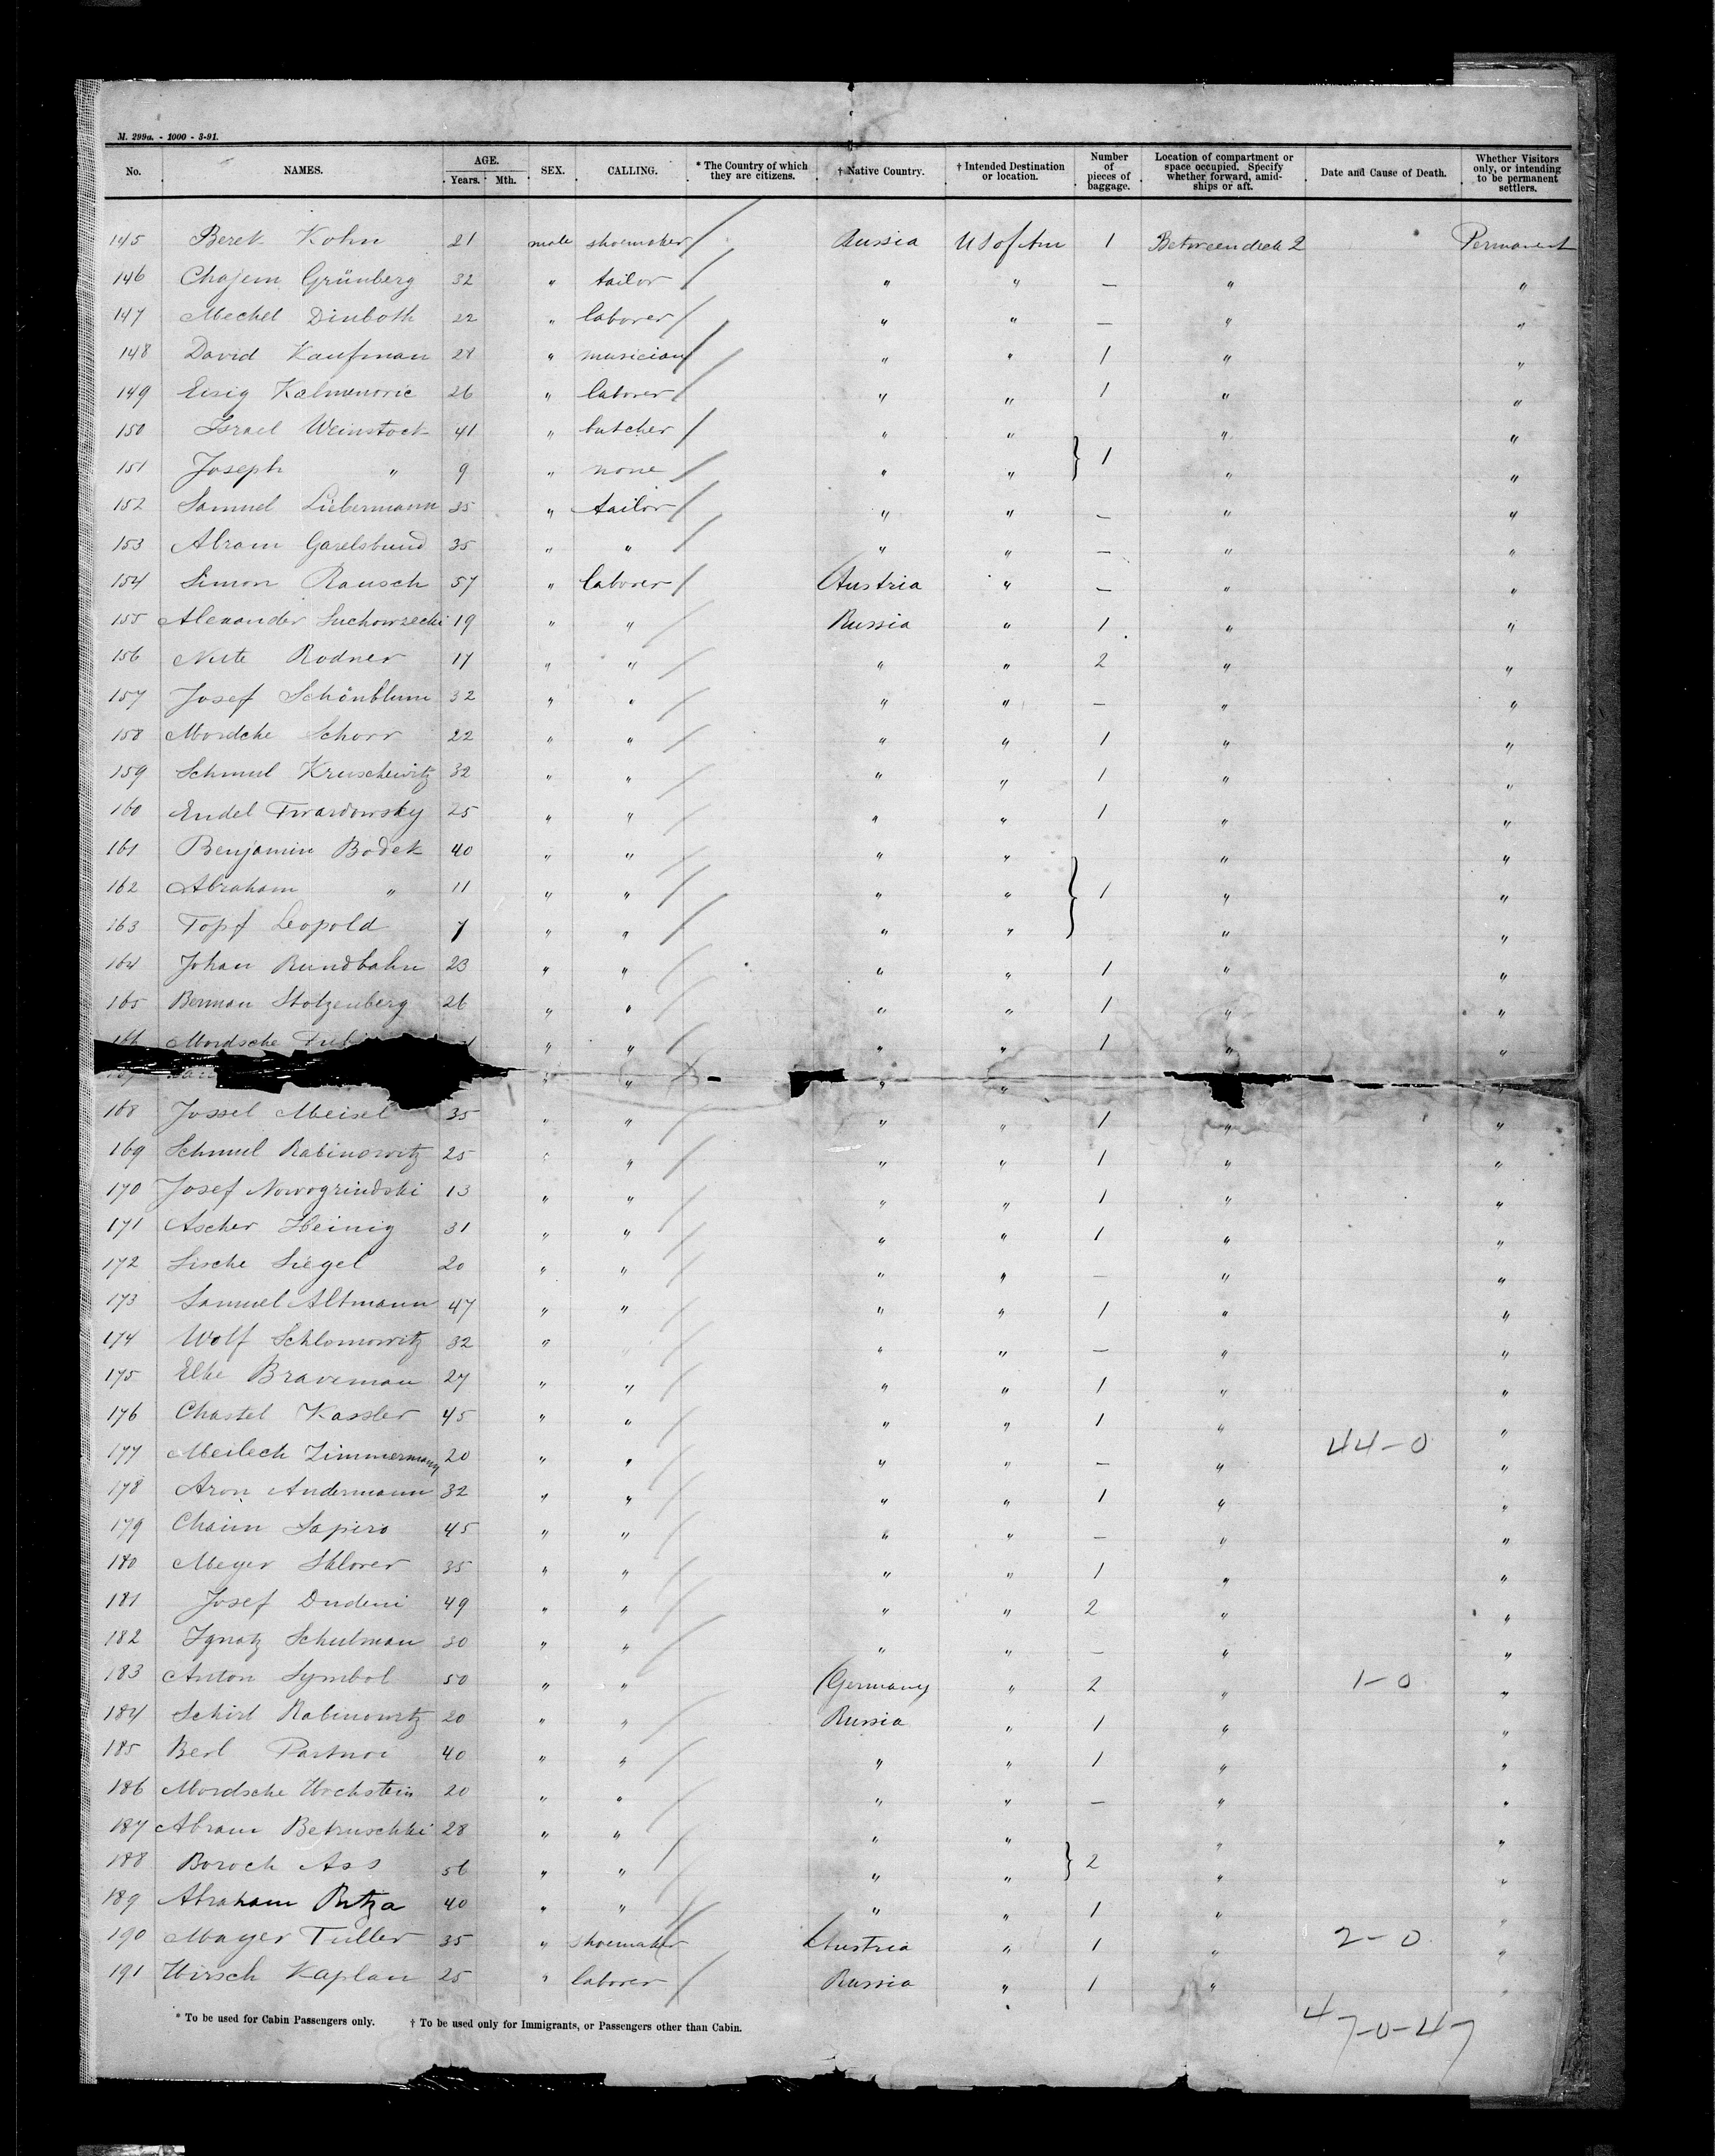 M. 299a. - 1000 - 3-91.
No. NAMES. AGE. Years. Mth. SEX. CALLING. * The Country of which they are citizens. † Native Country. † Intended Destination or location. Number of pieces of baggage. Location of compartment or space occupied. Specify whether forward, amidships or aft. Date and Cause of Death. Whether Visitors only, or intending to be permanent settlers.
145 Berek Kohn 21 male shoemaker Russia U S of Am 1 Betweendeck 2 Permanent
146 Chajem Grünberg 32 " tailor " " — " "
147 Mechel Dinboth 22 " laborer " " — " "
148 David Kaufman 28 " musician " " 1 " "
149 Eisig Kalmenovic 26 " laborer " " 1 " "
150 Israel Weinstock 41 " butcher " " " "
151 Joseph " 9 " none " " } 1 " "
152 Samuel Liebermann 35 " tailor " " — " "
153 Abram Garelsbund 35 " " " " — " "
154 Simon Rausch 57 " laborer Austria " — " "
155 Alexander Suchowzecki 19 " " Russia " 1 " "
156 Nute Rodner 17 " " " " 2 " "
157 Josef Schönblum 32 " " " " — " "
158 Mordche Schorr 22 " " " " 1 " "
159 Schmul Kruschewitz 32 " " " " 1 " "
160 Endel Twardowsky 25 " " " " 1 " "
161 Benjamin Bodek 40 " " " " " "
162 Abraham " 11 " " " " } 1 " "
163 Topf Leopold 7 " " " " " "
164 Johan Rundbahn 23 " " " " 1 " "
165 Berman Stolzenberg 26 " " " " 1 " "
166 Mordsche " " " " 1 " "
" " " "
168 Jossel Meisel 35 " " " " 1 " "
169 Schmul Rabinowitz 25 " " " " 1 " "
170 Josef Nowogrindski 13 " " " " 1 " "
171 Ascher Heinig 31 " " " " 1 " "
172 Sische Siegel 20 " " " " — " "
173 Samuel Altmann 47 " " " " 1 " "
174 Wolf Schlomowitz 32 " " " — " "
175 Elke Braveman 27 " " " " 1 " "
176 Chastel Kassler 45 " " " " 1 " "
177 Meilech Zimmermann 20 " " " " — " 44-0 "
178 Aron Andermann 32 " " " " 1 " "
179 Chaim Sapiro 45 " " " " — " "
180 Meyer Sklover 35 " " " " 1 " "
181 Josef Dudeni 49 " " " " 2 " "
182 Ignatz Schulman 30 " " " " — " "
183 Anton Symbol 50 " " Germany " 2 " 1-0 "
184 Schirl Rabinowitz 20 " " Russia " 1 " "
185 Berl Partnoi 40 " " " " 1 " "
186 Mordsche Hochstein 20 " " " " — " "
187 Abram Betruschki 28 " " " " " "
188 Boroch Ass 56 " " " " } 2 " "
189 Abraham Putza 40 " " " " 1 " "
190 Mayer Tuller 35 " shoemaker Austria " 1 " 2-0 "
191 Hirsch Kaplan 25 " laborer Russia " 1 "
* To be used for Cabin Passengers only. † To be used only for Immigrants, or Passengers other than Cabin.
47-0-47